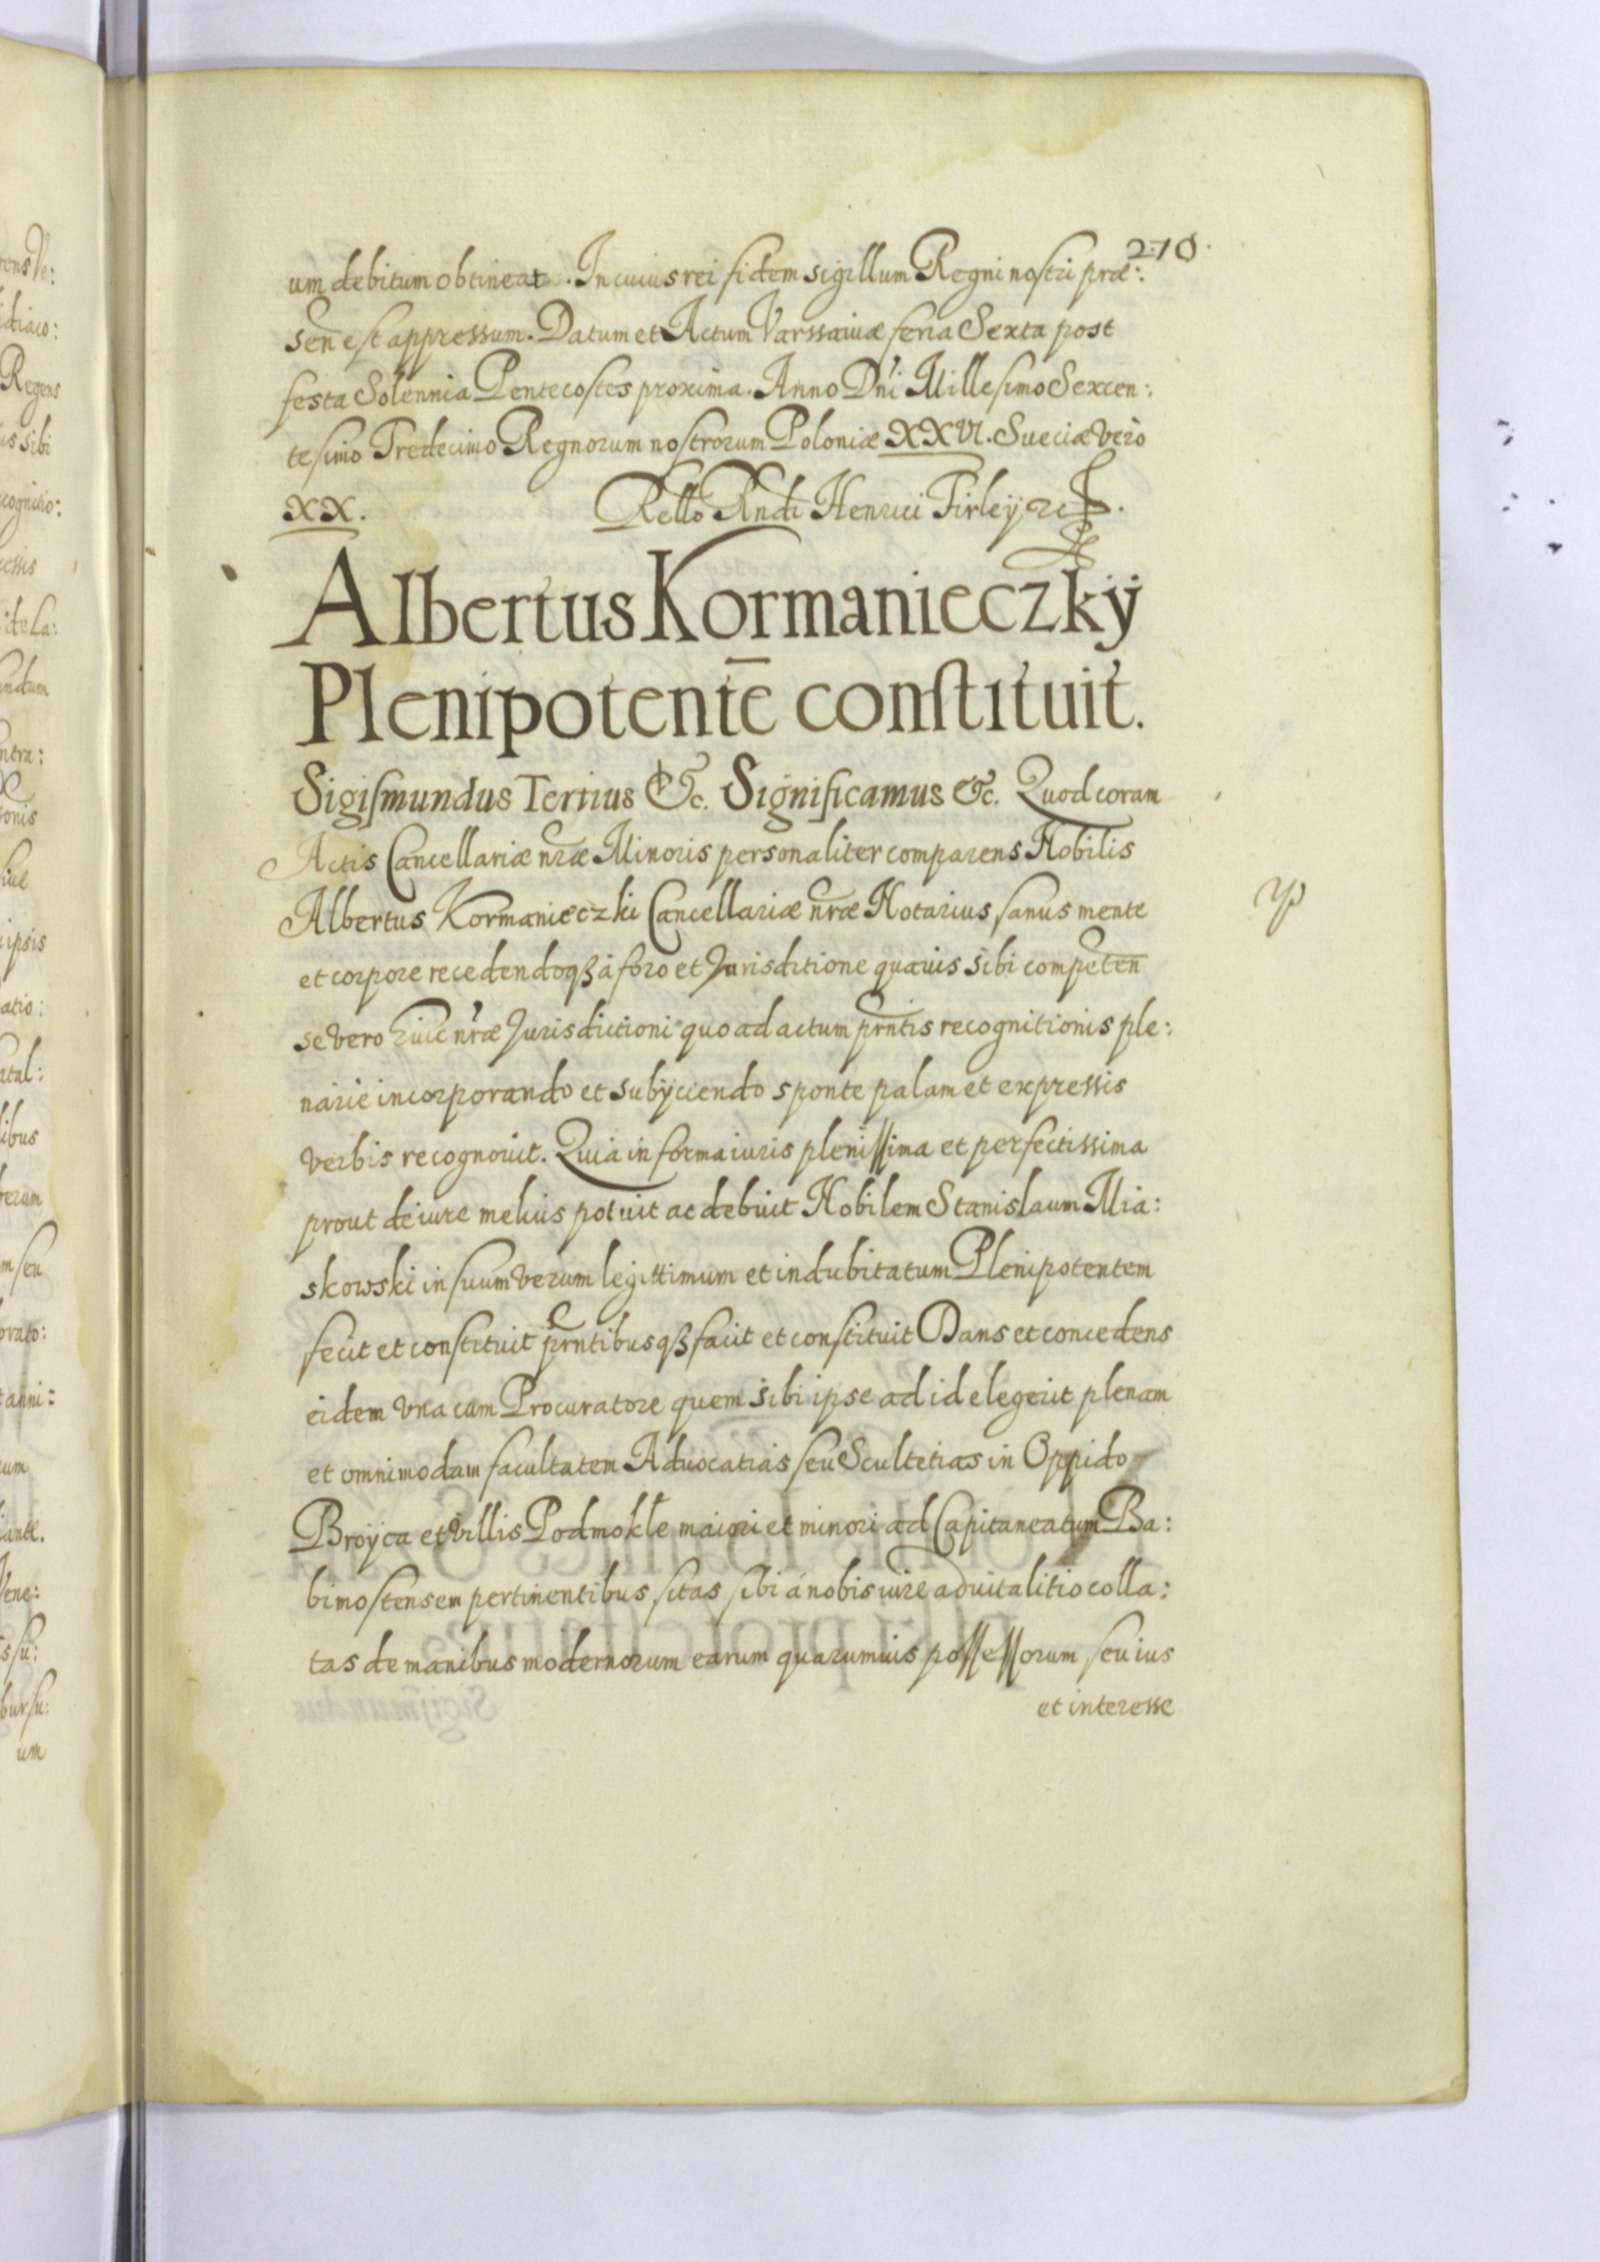 270.
um debitum obtineat. In cuius rei fidem sigillum Regni nostri præ:
sen̄ est appressum. Datum et Actum Varssaiuæ feria Sexta post
festa Solennia Pentecostes proxima. Anno Dn̄i Millesimo Sexcen:
tesimo Tredecimo Regnorum nostrorum Poloniæ XXVI. Sueciæ vero
XX. Rello Rndi Henrici Firleÿ
Albertus Kormanieczkÿ
Plenipotentē constituit.
Sigismundus Tertius &c. Significamus &c. Quod coram
Actis Cancellariæ nr̄æ Minoris personaliter comparens Nobilis
Albertus Kormanieczki Cancellariæ nr̄æ Notarius, sanus mente
et corpore recedendoqȝ á foro et Jurisditione quauis sibi competen̄
se vero huic nr̄æ Jurisdictioni quo ad actum prn̄tis recognitionis ple:
narie incorporando et subÿciendo sponte palam et expressis
verbis recognovit. Quia in forma iuris plenissima et perfectissima
prout de iure melius potuit ac debuit Nobilem Stanislaum Mia:
skowski in suum verum legittimum et indubitatum Plenipotentem
fecit et constituit prn̄tibusqȝ facit et constituit Dans et concedens
eidem vna cum Procuratore quem sibi ipse ad id elegerit plenam
et omnimodam facultatem Aduocatias seu Scultetias in Oppido
Broÿca et villis Podmokłe maiori et minori ad Capitaneatum Ba:
bimostensem pertinentibus, sitas sibi á nobis iure aduitalitio colla:
tas de manibus modernorum earum quarumuis possessorum seu ius
et interesse